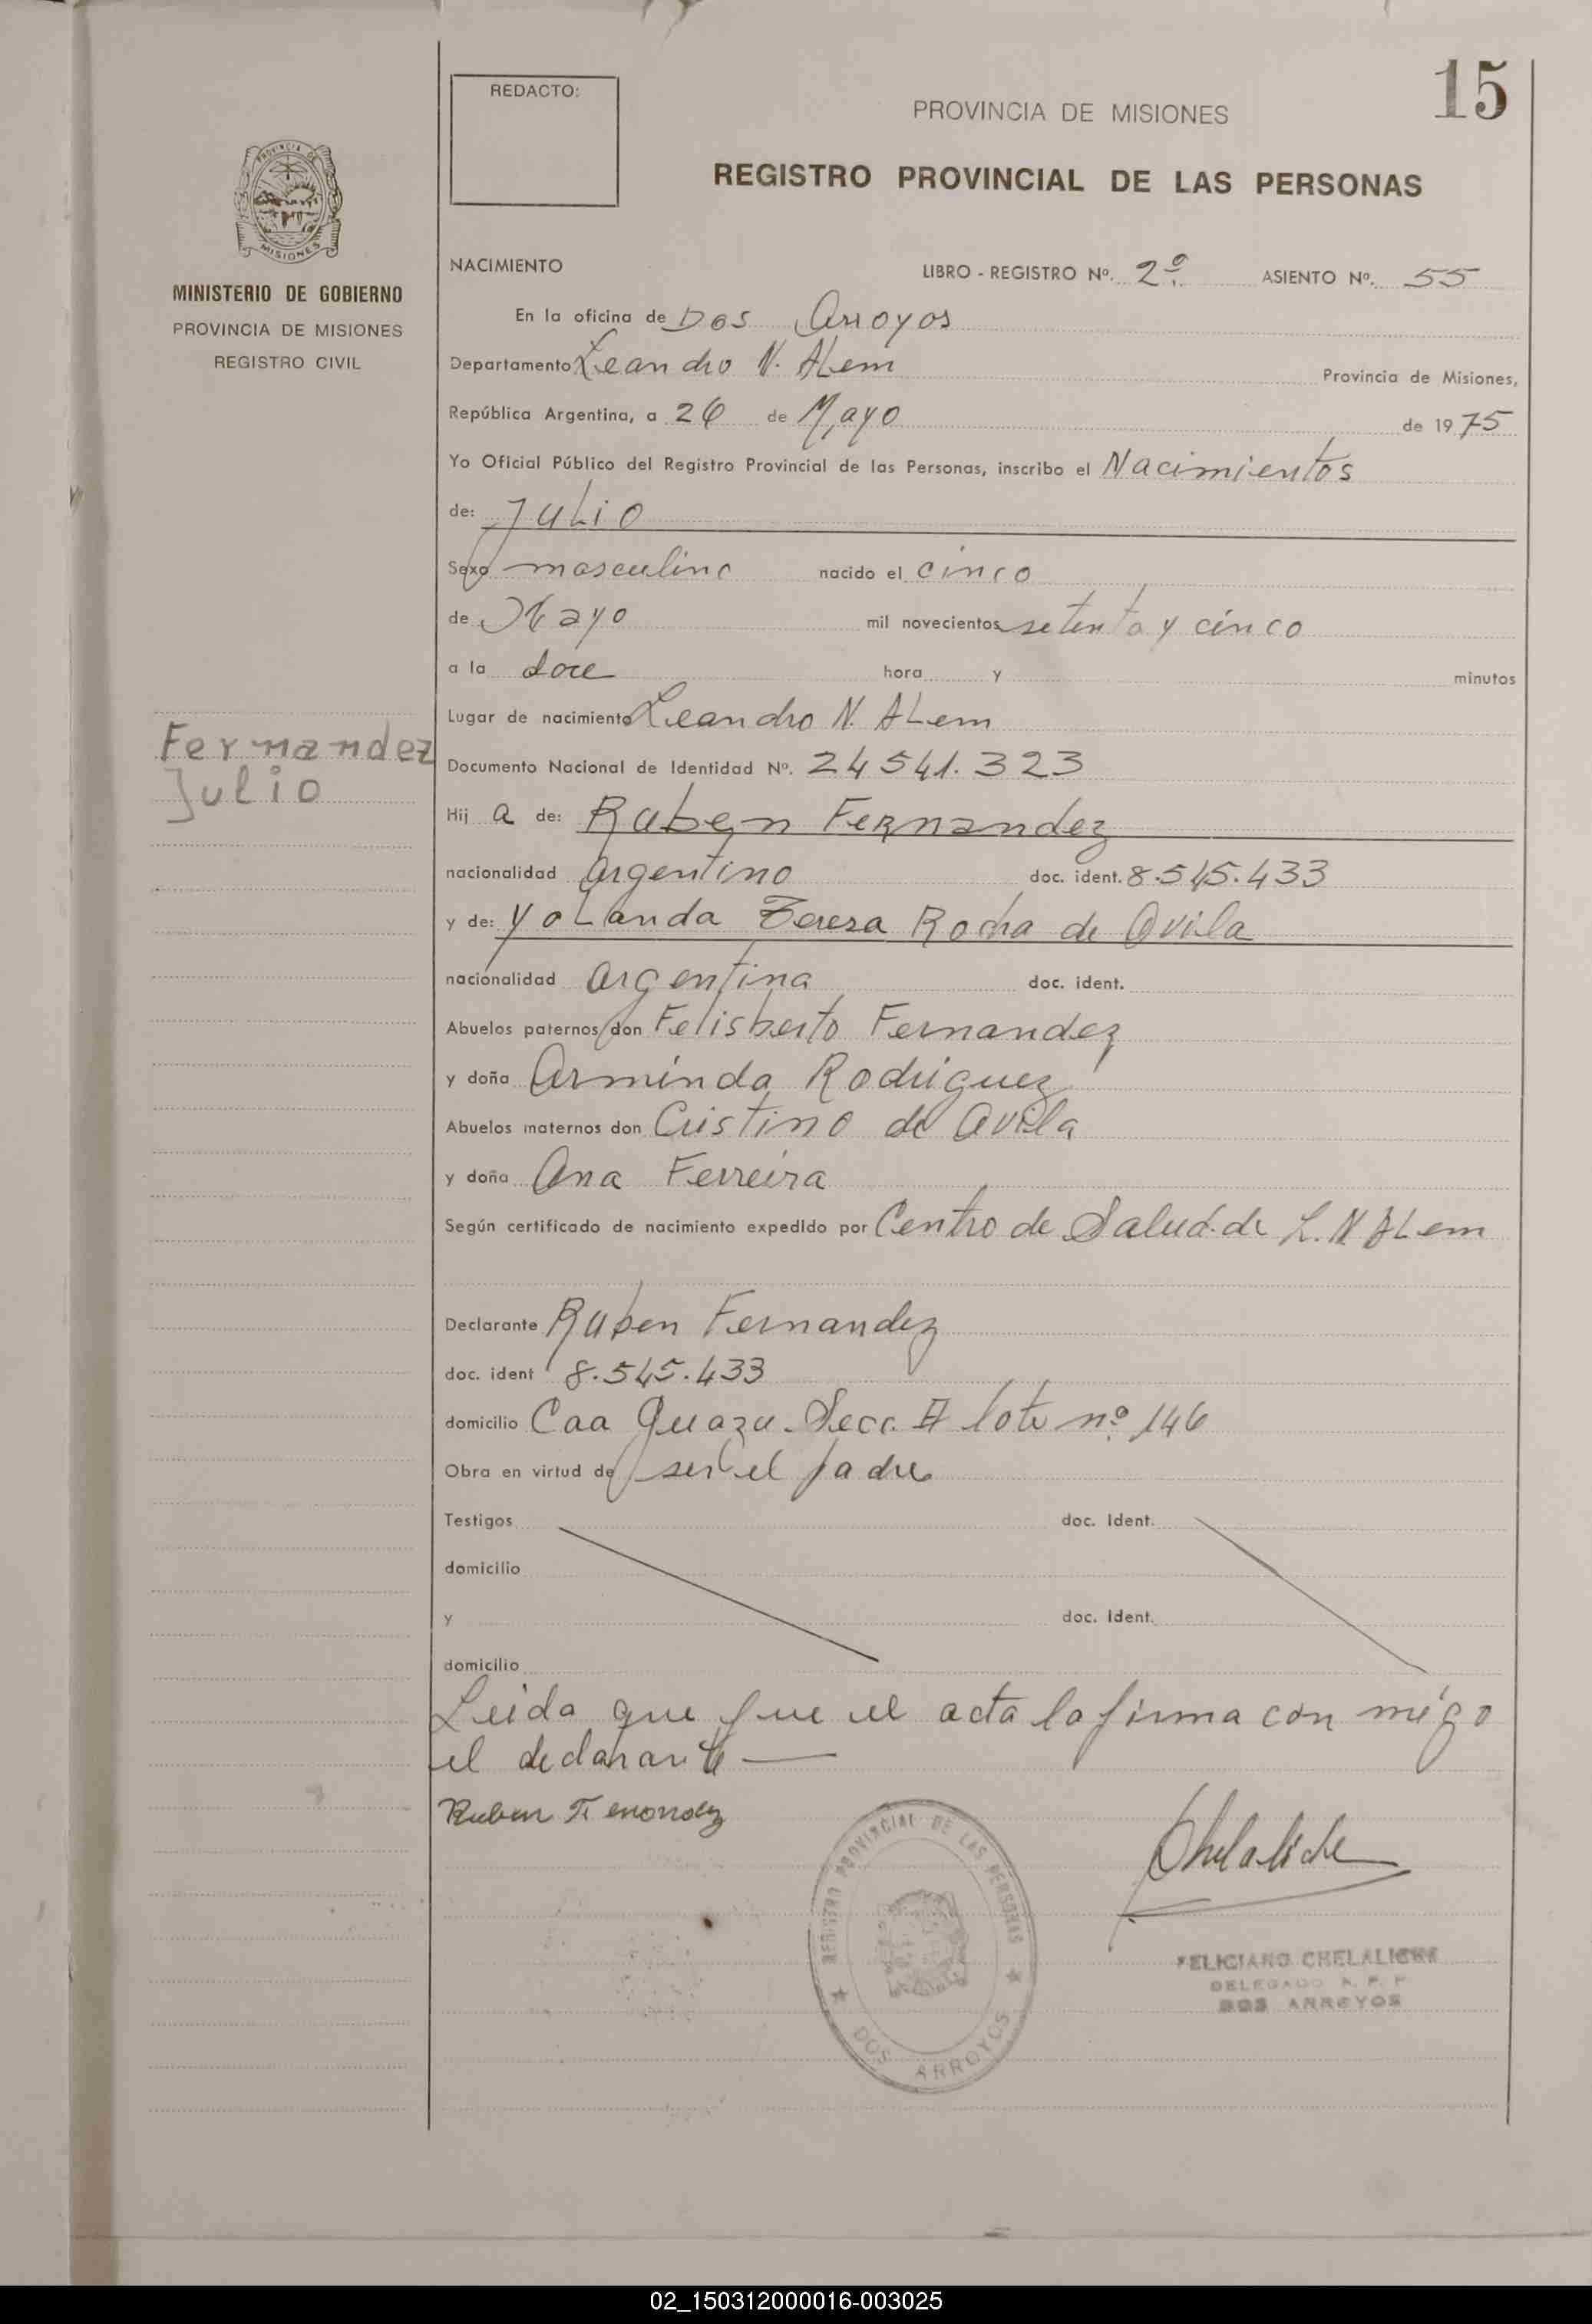 15
REDACTO:
PROVINCIA DE MISIONES
REGISTRO PROVINCIAL DE LAS PERSONAS
PROVINCIA DE
MISIONES
MINISTERIO DE GOBIERNO
PROVINCIA DE MISIONES
REGISTRO CIVIL
NACIMIENTO LIBRO - REGISTRO Nº. 2º. ASIENTO Nº. 55
En la oficina de Dos Arroyos
Departamento Leandro N. ALem Provincia de Misiones,
República Argentina, a 26 de Mayo de 1975
Yo Oficial Público del Registro Provincial de las Personas, inscribo el Nacimientos
de: JULiO
Sexo masculino nacido el cinco
de Mayo mil novecientos setenta y cinco
a la doce hora y minutos
Lugar de nacimiento Leandro N. ALem
Fernandez
Julio
Documento Nacional de Identidad Nº. 24541.323
Hij a de: Ruben Fernandez
nacionalidad argentino doc. ident. 8.545.433
y de: YoLanda Teresa Rocha de Avila
nacionalidad argentina doc. ident.
Abuelos paternos don Felisberto Fernandez
y doña Arminda Rodriguez
Abuelos maternos don Cristino de Avila
y doña Ana Ferreira
Según certificado de nacimiento expedido por Centro de Salud. de L. N ALem
Declarante Ruben Fernandez
doc. ident 8.545.433
domicilio Caa Guazu. Secc. lote nº 146
Obra en virtud de ser el padre
Testigos doc. Ident.
domicilio
y doc. Ident.
domicilio
Leida que fue el acta la firma con migo
el declarante —
Ruben Fernandez
Chelaliche
REGISTRO PROVINCIAL DE LAS PERSONAS
DOS ARROYOS
FELICIANO CHELALICHE
DELEGADO R. P. P
DOS ARROYOS
02_150312000016-003025